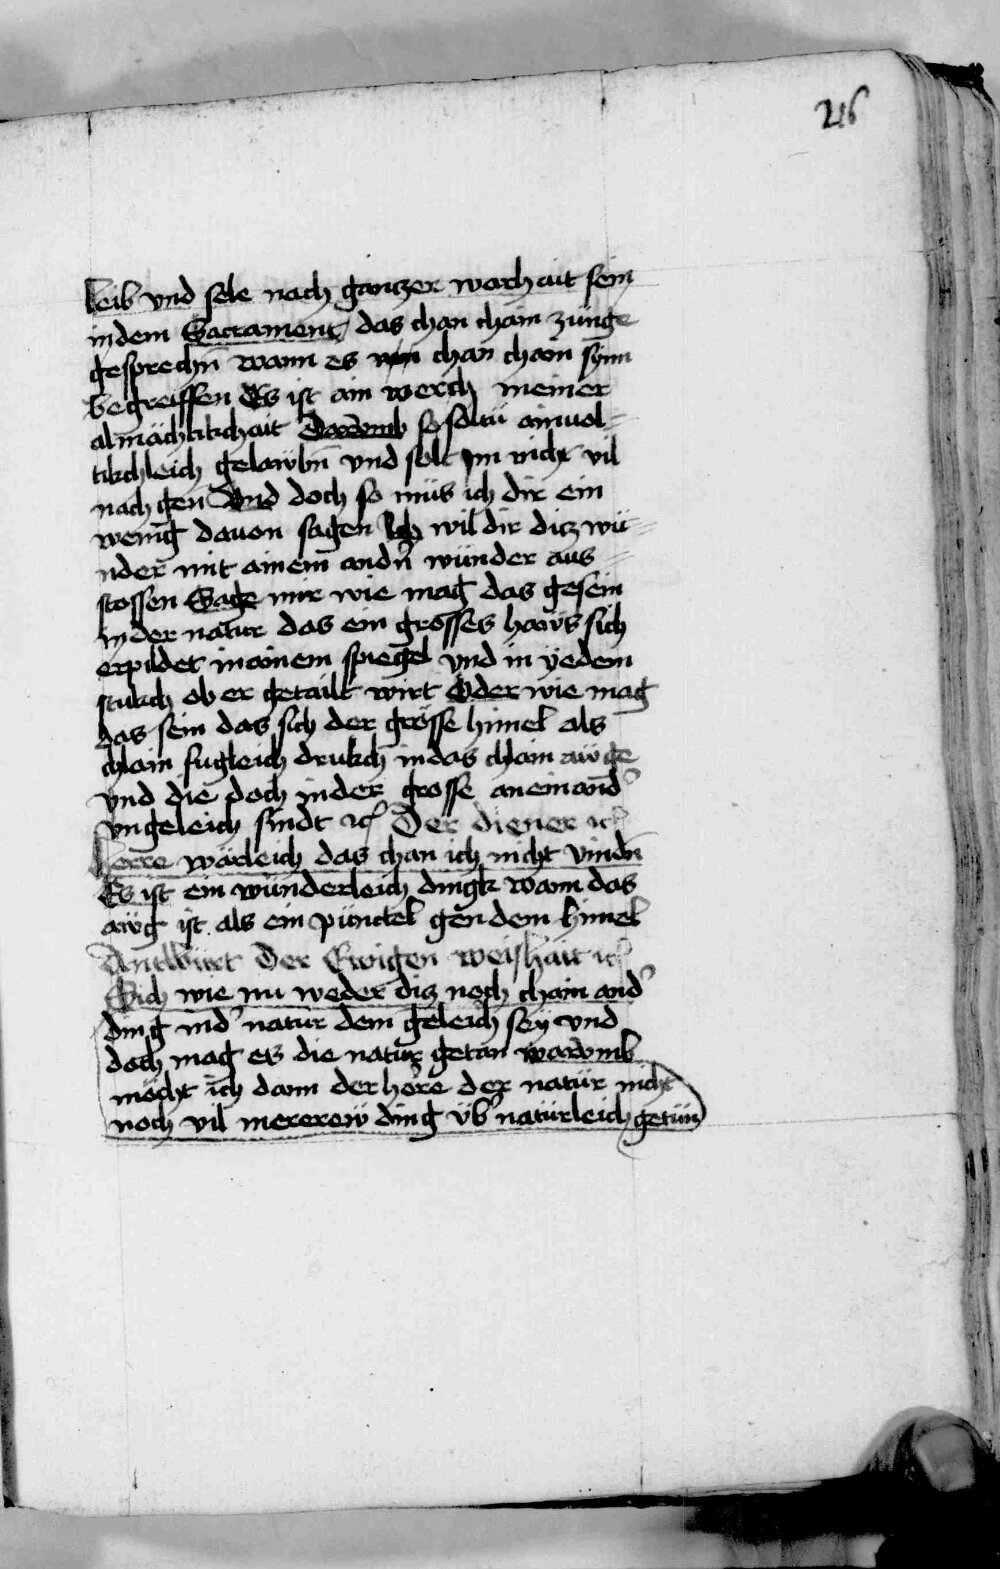 216
leib vnd sele nach gantzer warhait sein
in dem Sacrament das chan chain zunge
gesprechn̄ wann es chan chain synn
begreiffen Es ist ain werch meiner
almächtikchait Darvmb so soltu ainuol-
tikchleich gelawbn̄ vnd solt im nicht vil
nach gen Vnd doch so müs ich dir ein
wenig dauon sagen Ich wil dir ditz wü-
nder mit ainem andn̄ wünder aus-
stossen Sage mir wie mag das gesein
in der natur das ein grosses haws sich
erpildet in ainem spiegel vnd in yedem
stukch ob er getailt wirt Oder wie mag
das sein das sich der grösse himel als
chlain fugleich drukch in das chlain awge
vnd die doch in der grosse aneinand'
vngeleich sindt etc̄ Der diener etc̄
herre wärleich das chan ich nicht vindn̄
Es ist ein wünderleich dingk wann das
awg ist als ein püncktel gen dem himel
Antwürt Der Ewigen weishait etc̄
Sich wie nu weder ditz noch chain and'
ding in d' natur dem geleich sey vnd
doch mag es die natur getan warvmb
möcht ich dann der herre der natür nicht
noch vil mererew ding üb' natürleich getün